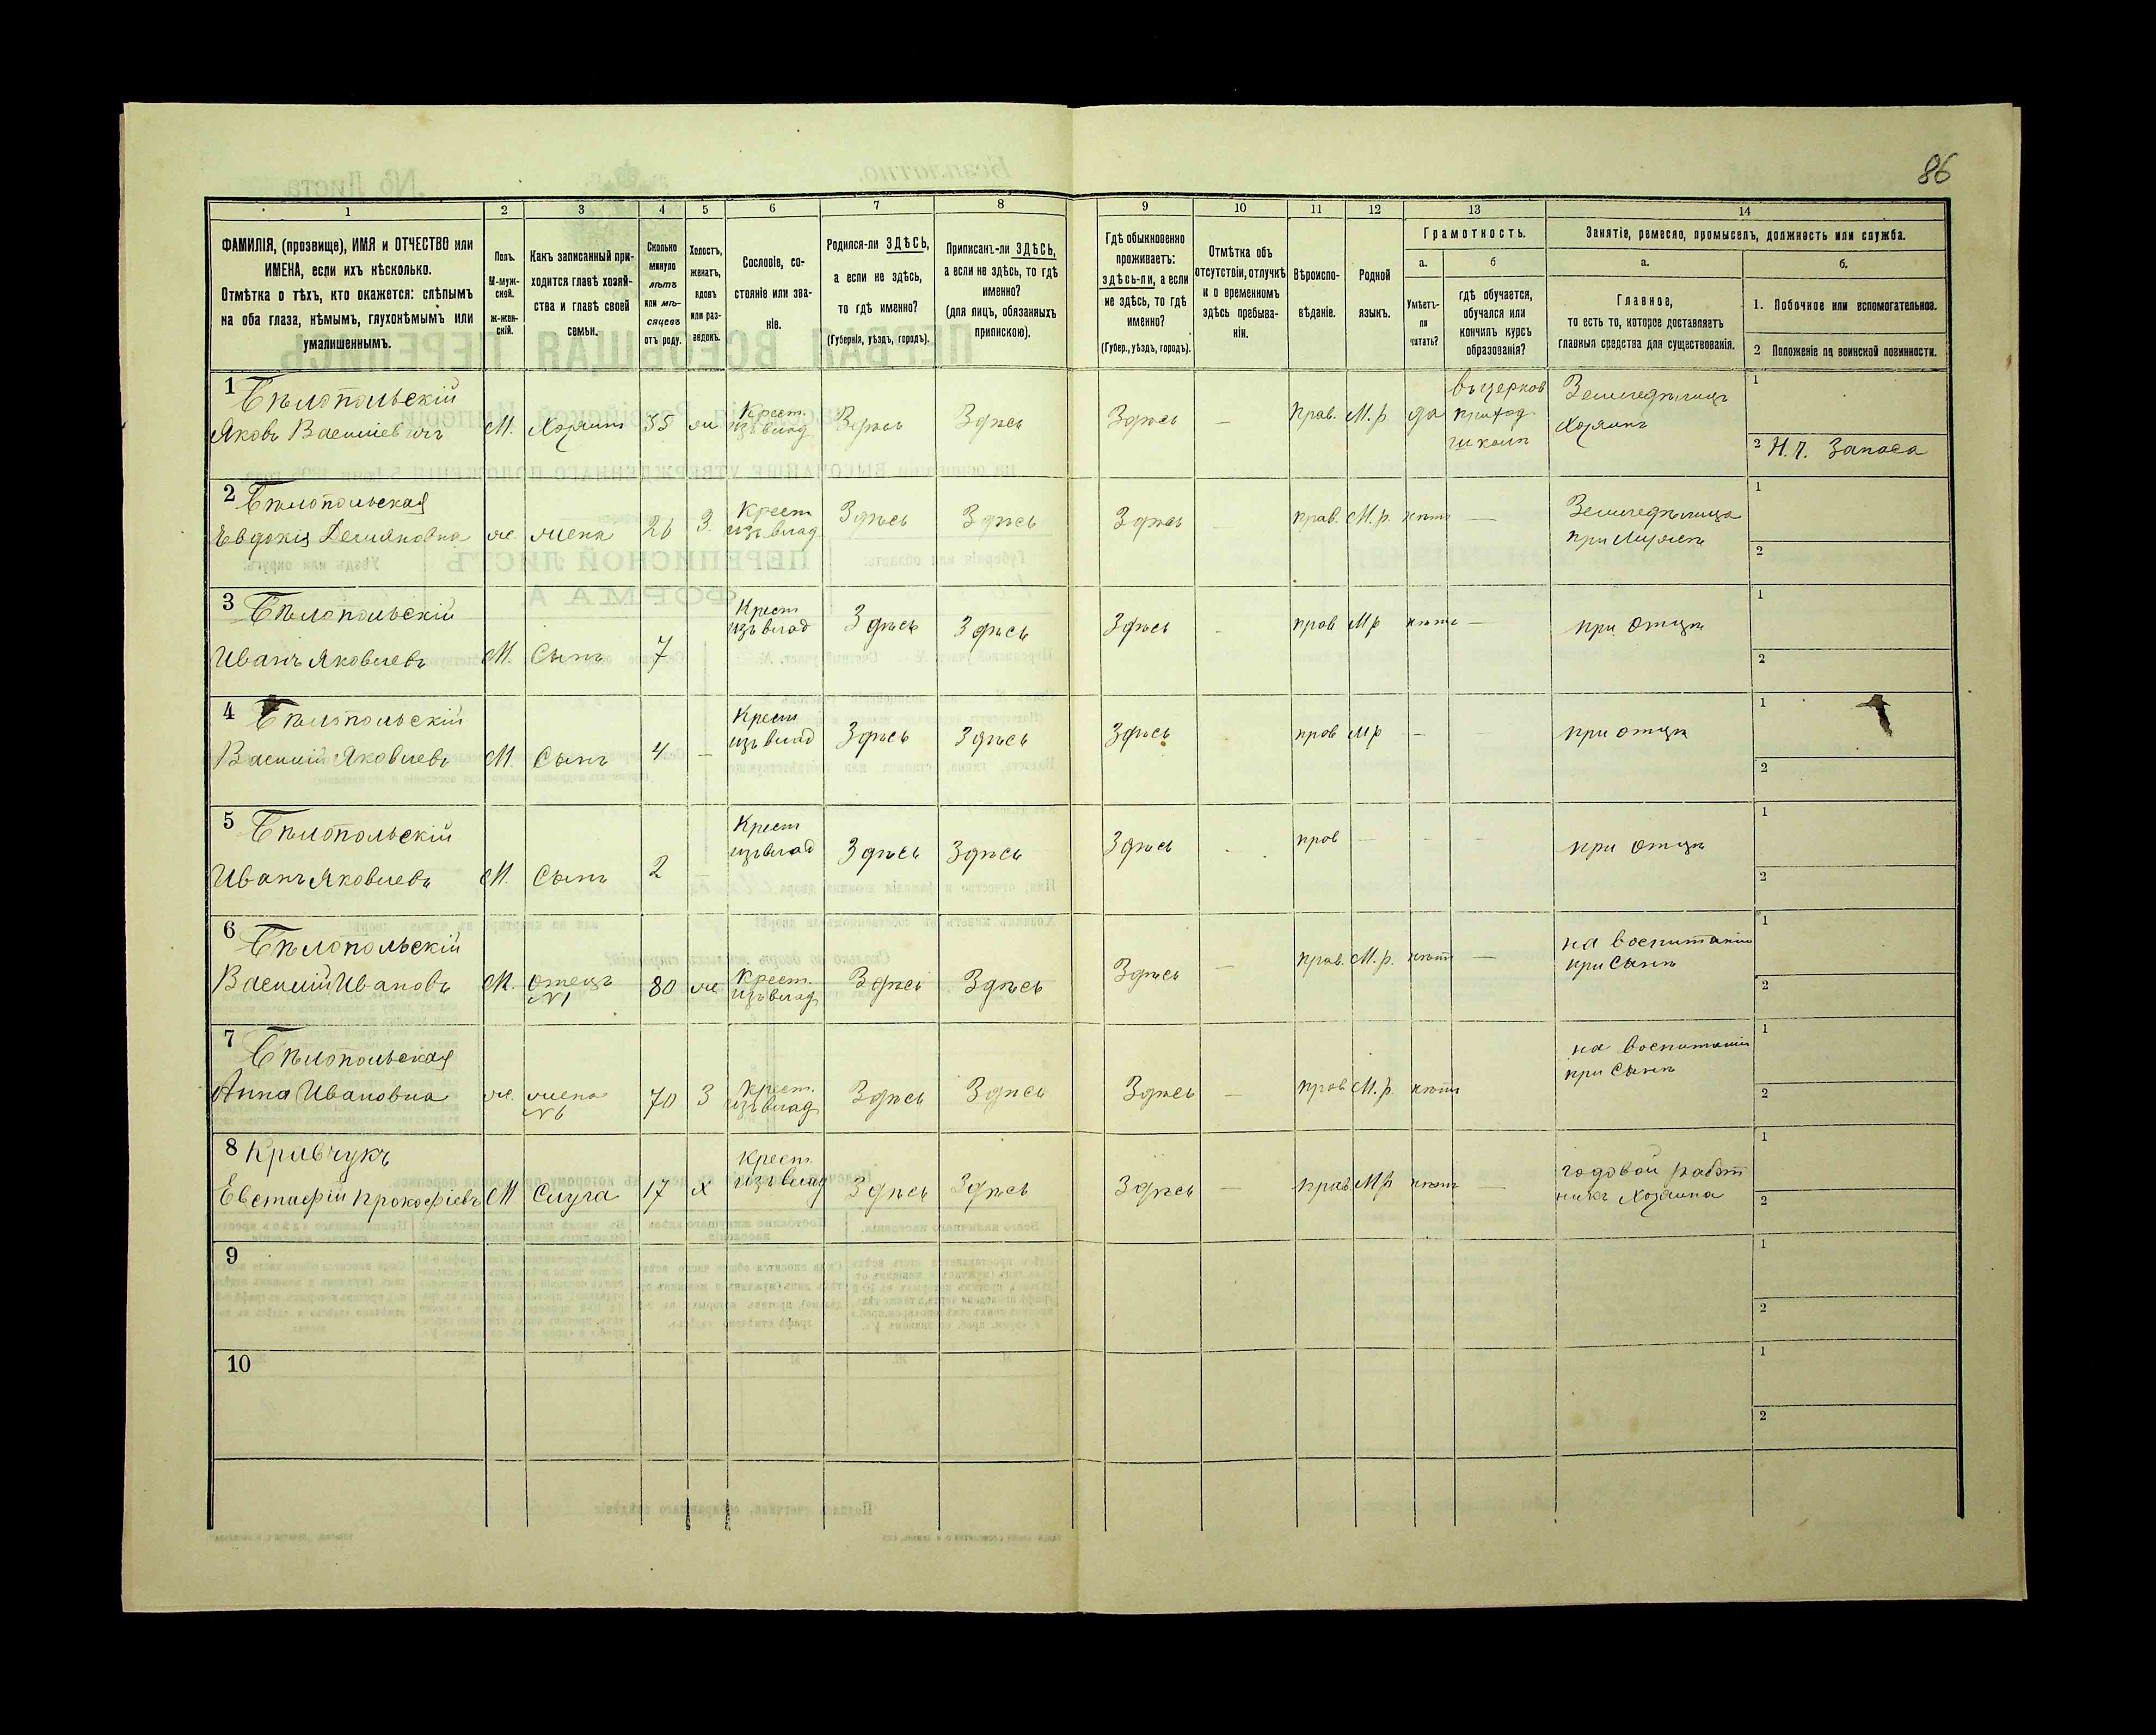 86
1
2
3
4
5
6
7
8
9
10
11
12
13
14
ФАМИЛІЯ, (прозвище), ИМЯ и ОТЧЕСТВО или
ИМЕНА, если ихъ нѣсколько.
Отмѣтка о тѣхъ, кто окажется: слѣпымъ
на оба глаза, нѣмымъ, глухонѣмымъ или
умалишеннымъ.
Полъ.
М-муж-
ской.
Ж-жен-
скій.
Какъ записанный при-
ходится главѣ хозяй-
ства и главѣ своей
семьи.
Сколько
минуло
лѣтъ
или мѣ-
сяцевъ
отъ роду.
Холостъ,
женатъ,
вдовъ
или раз-
веденъ.
Сословіе, со-
стояніе или зва-
ніе.
Родился-ли ЗДѢСЬ,
а если не здѣсь,
то гдѣ именно?
(Губернія, уѣздъ, городъ).
Приписанъ-ли ЗДѢСЬ,
а если не здѣсь, то гдѣ
именно?
(для лицъ, обязанныхъ
припискою).
Гдѣ обыкновенно
проживаетъ:
здѣсь-ли, а если
не здѣсь, то гдѣ
именно?
(Губер., уѣздъ, городъ).
Отмѣтка объ
отсутствіи, отлучкѣ
и о временномъ
здѣсь пребыва-
ніи.
Вѣроиспо-
вѣданіе.
Родной
языкъ.
Грамотность.
а.
Умѣетъ-
ли
читать?
б
гдѣ обучается,
обучался или
кончилъ курсъ
образованія?
Занятіе, ремесло, промыселъ, должность или служба.
а.
Главное,
то есть то, которое доставляетъ
главныя средства для существованія.
б.
1. Побочное или вспомогательное.
2 Положеніе по воинской повинности.
1 Бѣлопольскій
Яковъ Васильевичъ М. Хозяинъ 35 ж Крест. изъ влад Здѣсь Здѣсь Здѣсь — Прав. М.р. да въ церков приход. школѣ Земледѣлецъ Хозяинъ 1
2 Н.Ч. Запаса
2 Бѣлопольская
Евдокія Демяновна ж. жена 26 З. Крест изъ влад Здѣсь Здѣсь Здѣсь — прав. М.р. нѣтъ — Земледѣлица при мужѣ 1
2
3 Бѣлопольскій
Иванъ Яковлевъ М. Сынъ 7 Крест изъ влад Здѣсь Здѣсь Здѣсь - прав М р нѣтъ — при отцѣ 1
2
4 Бѣлопольскій
Василій Яковлевъ М. Сынъ 4 — Крест изъ влад Здѣсь Здѣсь Здѣсь - прав М р — - при отцѣ 1
2
5 Бѣлопольскій
Иванъ Яковлевъ М. Сынъ 2 — Крест изъ влад Здѣсь Здѣсь Здѣсь - прав — - - при отцѣ 1
2
6 Бѣлопольскій
Василій Ивановъ М. отецъ №1 80 ж Крест. изъ влад Здѣсь Здѣсь Здѣсь — прав. М.р. нѣтъ — на воспитаніи при сынѣ 1
2
7 Бѣлопольская
Анна Ивановна ж. жена №6 70 З Крест. изъ влад Здѣсь Здѣсь Здѣсь — прав М.р. нѣтъ на воспитаніи при сынѣ 1
2
8 Кривчукъ
Евстафій Прокофіевъ М. Слуга 17 х Крест. изъ влад Здѣсь Здѣсь Здѣсь — прав М р нѣтъ — годовой работ никъ Хозяина 1
2
9
1
2
10
1
2